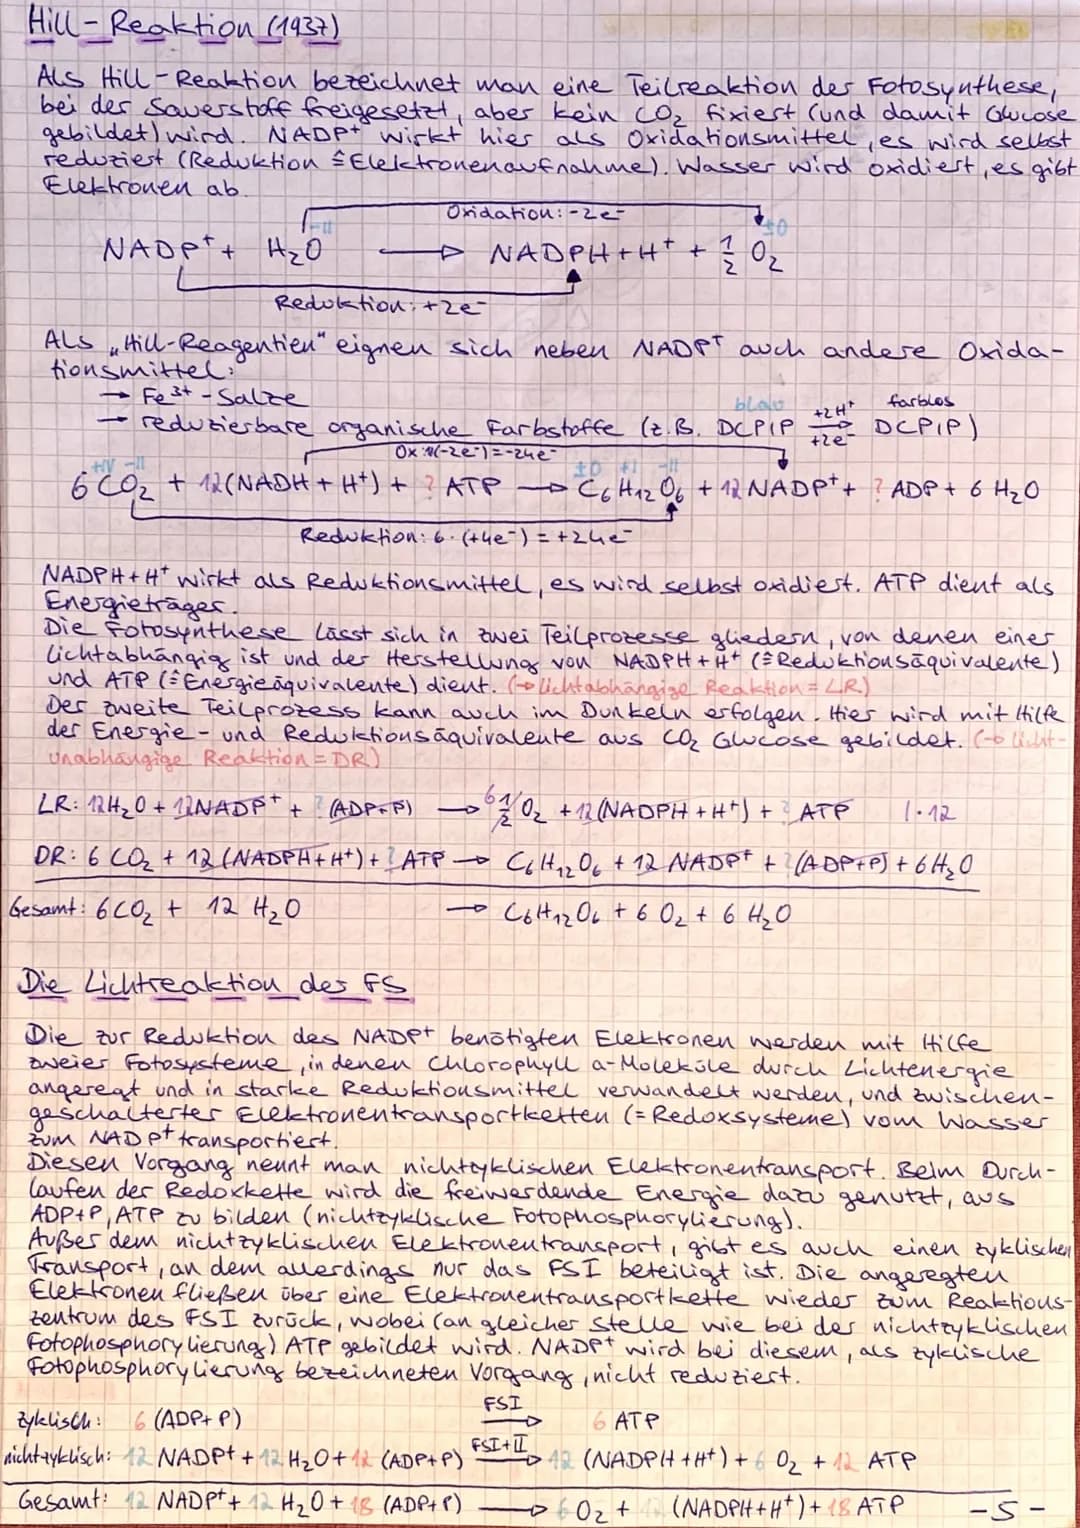 Hill-Reaktion (1937)
Als Hill-Reaktion bezeichnet man eine Teilreaktion der Fotosynthese,
bei der Sauerstoff freigesetzt, aber kein CO₂ fixiert (und damit Glucose
gebildet) wird. NADP⁺ wirkt hier als Oxidationsmittel, es wird selbst
reduziert (Reduktion ≙ Elektronenaufnahme). Wasser wird oxidiert, es gibt
Elektronen ab.
Oxidation: -2e⁻
-II ±0
NADP⁺ + H₂O → NADPH+H⁺ + 1/2 O₂
Reduktion: +2e⁻
Als „Hill-Reagentien" eignen sich neben NADP⁺ auch andere Oxida-
tionsmittel:
→ Fe³⁺-Salze
blau +2H⁺ farblos
→ reduzierbare organische Farbstoffe (z.B. DCPIP → DCPIP)
+2e⁻
Ox: 12(-2e⁻) = -24e⁻
+IV -II ±0 +I -II
6 CO₂ + 12(NADH + H⁺) + ? ATP → C₆H₁₂O₆ + 12 NADP⁺ + ? ADP + 6 H₂O
Reduktion: 6·(+4e⁻) = +24e⁻
NADPH+H⁺ wirkt als Reduktionsmittel, es wird selbst oxidiert. ATP dient als
Energieträger.
Die Fotosynthese lässt sich in zwei Teilprozesse gliedern, von denen einer
lichtabhängig ist und der Herstellung von NADPH+H⁺ (≙ Reduktionsäquivalente)
und ATP (≙ Energieäquivalente) dient. (→ lichtabhängige Reaktion = LR.)
Der zweite Teilprozess kann auch im Dunkeln erfolgen. Hier wird mit Hilfe
der Energie- und Reduktionsäquivalente aus CO₂ Glucose gebildet. (→ licht-
unabhängige Reaktion = DR)
LR: 12H₂O + 12NADP⁺ + ? (ADP+P) → 6 1/2 O₂ + 12(NADPH+H⁺) + ? ATP | · 12
DR: 6 CO₂ + 12(NADPH+H⁺) + ? ATP → C₆H₁₂O₆ + 12 NADP⁺ + ? (ADP+P) + 6H₂O
Gesamt: 6CO₂ + 12 H₂O → C₆H₁₂O₆ + 6 O₂ + 6 H₂O
Die Lichtreaktion der FS
Die zur Reduktion des NADP⁺ benötigten Elektronen werden mit Hilfe
zweier Fotosysteme, in denen Chlorophyll a-Moleküle durch Lichtenergie
angeregt und in starke Reduktionsmittel verwandelt werden, und zwischen-
geschalterter Elektronentransportketten (= Redoxsysteme) vom Wasser
zum NADP⁺ transportiert.
Diesen Vorgang nennt man nichtzyklischen Elektronentransport. Beim Durch-
laufen der Redoxkette wird die freiwerdende Energie dazu genutzt, aus
ADP+P, ATP zu bilden (nichtzyklische Fotophosphorylierung).
Außer dem nichtzyklischen Elektronentransport, gibt es auch einen zyklischen
Transport, an dem allerdings nur das FSI beteiligt ist. Die angeregten
Elektronen fließen über eine Elektronentransportkette wieder zum Reaktions-
zentrum des FSI zurück, wobei (an gleicher Stelle wie bei der nichtzyklischen
Fotophosphorylierung) ATP gebildet wird. NADP⁺ wird bei diesem, als zyklische
Fotophosphorylierung bezeichneten Vorgang, nicht reduziert.
FSI
zyklisch: 6 (ADP+P) → 6 ATP
FSI+II
nichtzyklisch: 12 NADP⁺ + 12 H₂O + 12 (ADP+P) → 12 (NADPH+H⁺) + 6 O₂ + 12 ATP
Gesamt: 12 NADP⁺ + 12 H₂O + 18 (ADP+P) → 6 O₂ + 12 (NADPH+H⁺) + 18 ATP
-5-